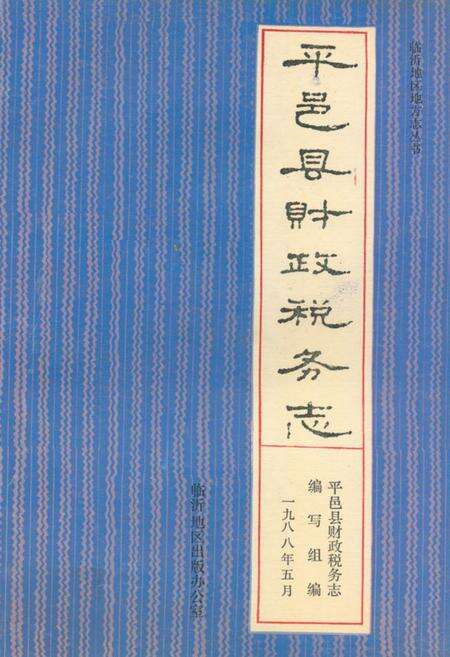 临沂地区地方志丛书
平邑县财政税务志
平邑县财政税务志
编写组编
一九八八年五月
临沂地区出版办公室